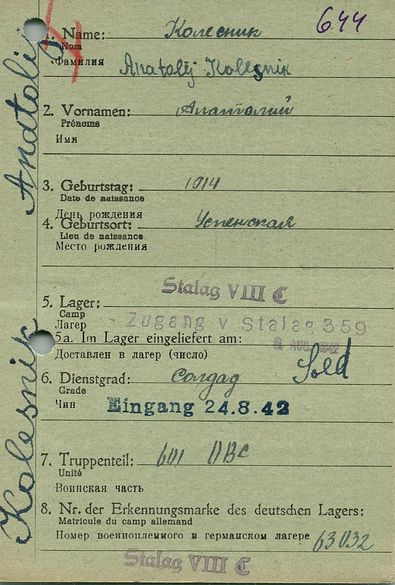 644
1. Name: Колесник
Nom
Фамилия Anatolij Kolesnik
2. Vornamen: Анатолий
Prénoms
Имя
3. Geburtstag: 1914
Date de naissance
День рождения
4. Geburtsort: Успенская
Lieu de naissance
Место рождения
Stalag VIII C
5. Lager:
Camp
Лагер Zugang v Stalag 359
5a. Im Lager eingeliefert am: AUG. 1942
Доставлен в лагер (число)
6. Dienstgrad: Солдад Sold
Grade
Чин Eingang 24.8.42
7. Truppenteil: 601
Unité
Воинская часть
8. Nr. der Erkennungsmarke des deutschen Lagers:
Matricule du camp allemand
Номер военнопленного в германском лагере 63032
Stalag VIII C
Kolesnik Anatolij